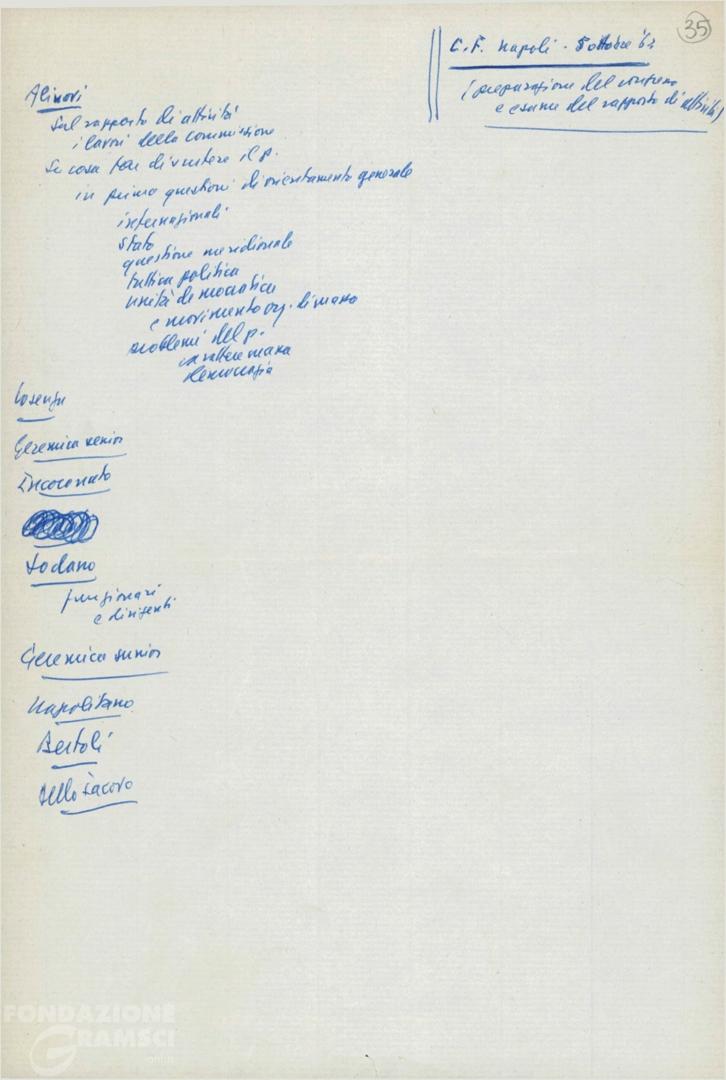 35
C.F. Napoli - 5 ottobre '62
(preparazione del congresso
e esame del rapporto di attività)
Alinovi
sul rapporto di attività
i lavori della commissione
Su cosa far discutere il p.
in primo questioni di orientamento generale
internazionali
stato
questione meridionale
tattica politica
unità democratica
e movimento org. di massa
problemi del p.
carattere massa
democrazia
Cosenza
Geremicca senior
Incoronato
Sodano
funzionari
e dirigenti
Geremicca junior
Napolitano
Bertoli
Dello Iacovo
FONDAZIONE
GRAMSCI